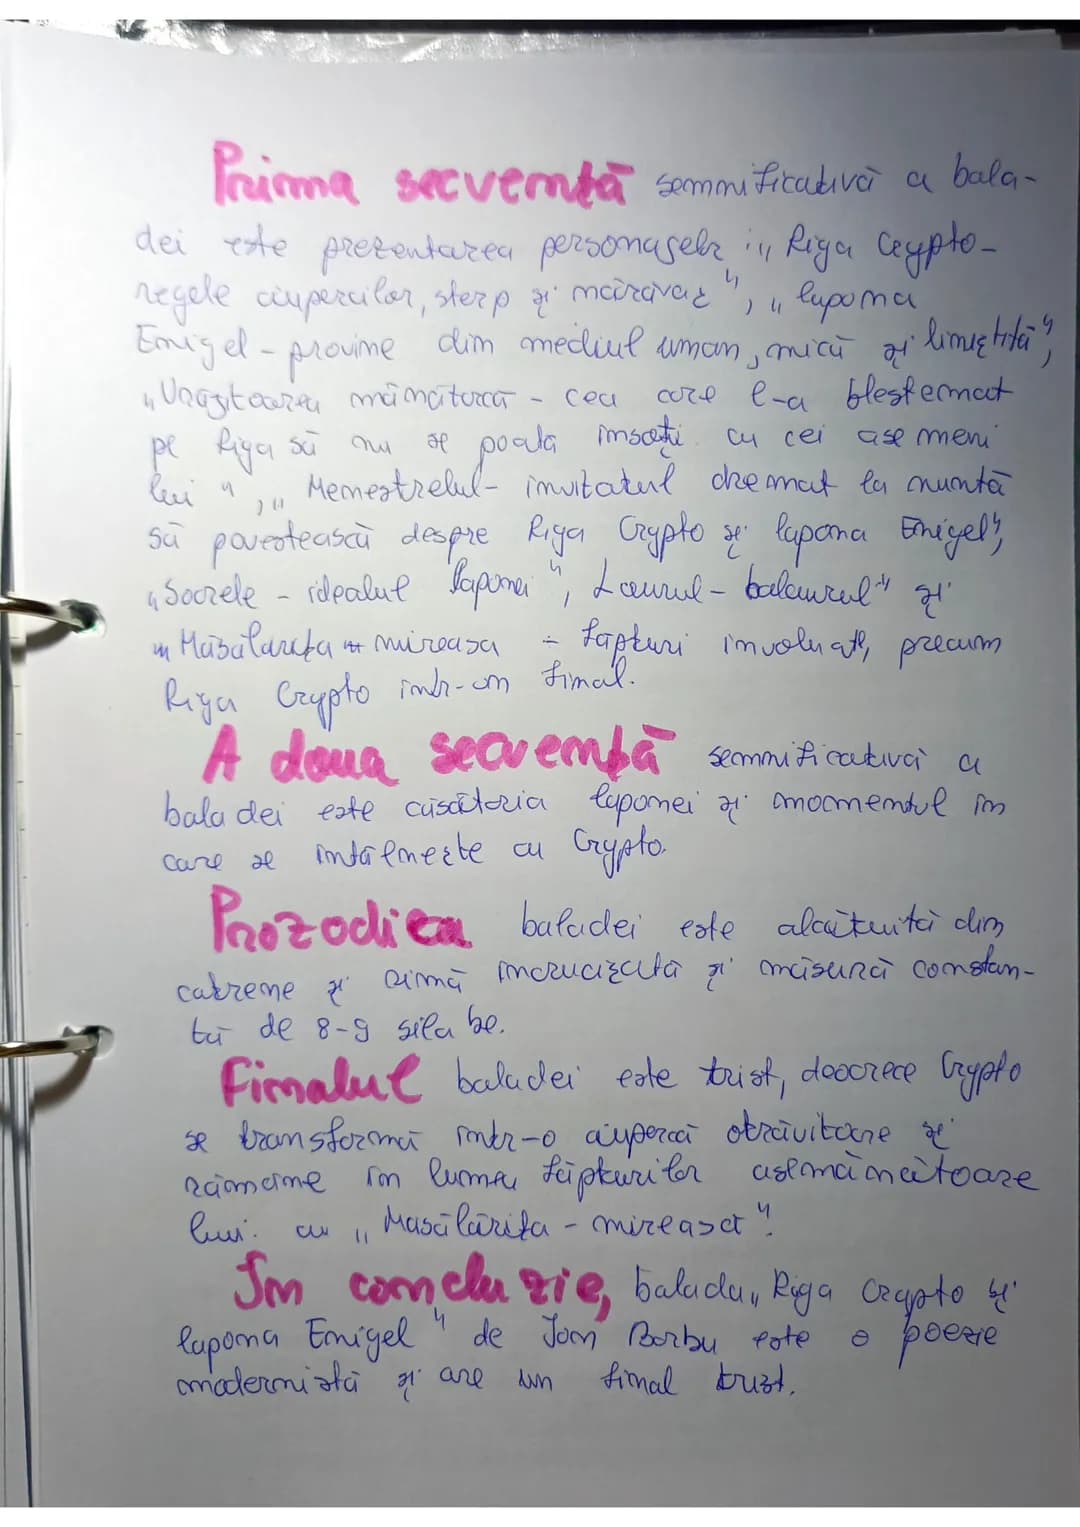 Prima secvență semnificativă a bala-
dei este prezentarea personajelor: „Riga Crypto-
regele ciupercilor, sterp și mărăvaț", „lapona
Enigel - provine din mediul uman, mică și liniștită",
„Vrăjitoarea mânătarcă - cea care l-a blestemat
pe Riga să nu se poată însoți cu cei asemeni
lui", „Menestrelul - invitatul chemat la nuntă
să povestească despre Riga Crypto și lapona Enigel",
„Soarele - idealul laponei", Laurul - balaurul" și
„Măsălarița - mireasa - făpturi involuate, precum
Riga Crypto într-un final.
A doua secvență semnificativă a
baladei este căsătoria laponei și momentul în
care se întâlnește cu Crypto.
Prozodica baladei este alcătuită din
catrene și rimă încrucișată și măsură constan-
tă de 8-9 silabe.
Finalul baladei este trist, deoarece Crypto
se transformă într-o ciupercă otrăvitoare și
rămâne în lumea făpturilor asemănătoare
lui. cu „Masălărița - mireasă".
În concluzie, balada „Riga Crypto și
lapona Enigel" de Ion Barbu este o poezie
modernistă și are un final trist.